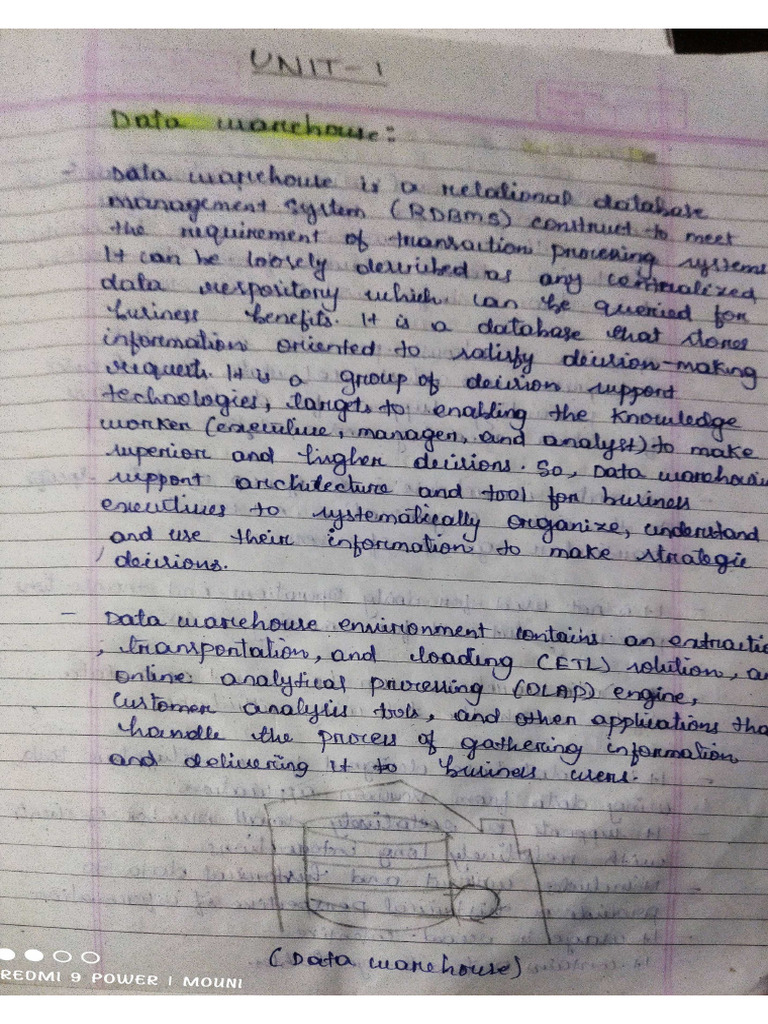 UNIT-1
Data warehouse:
- Data warehouse is a relational database
management system (RDBMS) construct to meet
the requirement of transaction processing systems
It can be loosely described as any centralized
data respository which can be queried for
business benefits. It is a database that stores
information oriented to satisfy decision-making
request. It is a group of decision support
technologies, targets to enabling the knowledge
worker (executive, manager, and analyst) to make
superior and higher decisions. So, Data warehousin
support architecture and tool for business
executives to systematically organize, understand
and use their information to make strategic
decisions.
- Data warehouse environment contains an extractio
, transportation, and loading (ETL) solution, an
online analytical processing (OLAP) engine,
customer analysis tools, and other applications tha
handle the process of gathering information
and delivering it to business users.
(Data warehouse)
REDMI 9 POWER | MOUNI